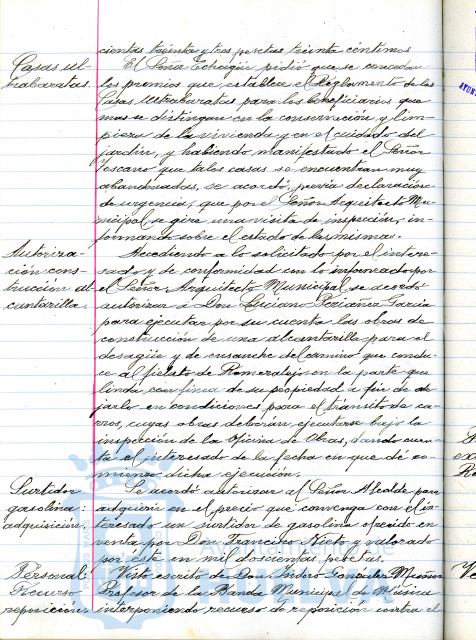 cientas treinta y tres pesetas treinta céntimos
Casas ul-
trabaratas.
El Señor Echagüe pidió que se concedan
los premios que establece el Reglamento de las
Casas Ultrabaratas para los beneficiarios que
mas se distingan en la conservación y lim-
pieza de la vivienda y en el cuidado del
jardín, y habiendo manifestado el Señor
Toscano que tales casas se encuentran muy
abandonadas, se acordó, previa declaración
de urgencia, que por el Señor Arquitecto Mu-
nicipal se gire una visita de inspección, in-
formando sobre el estado de las mismas.
Autoriza-
ción cons-
trucción al-
cantarilla.
Accediendo a lo solicitado por el intere-
sado y de conformidad con lo informado por
el Señor Arquitecto Municipal se acordó
autorizar a Don Luciano García
para ejecutar por su cuenta las obras de
construcción de una alcantarilla para el
desagüe y de ensanche del camino que condu-
ce al fielato de Romeralejo en la parte que
linda con finca de su propiedad a fin de de-
jarlo en condiciones para el tránsito de ca-
rros, cuyas obras deberán ejecutarse bajo la
inspección de la Oficina de Obras, dando cuen-
ta el interesado de la fecha en que dé co-
mienzo dicha ejecución.
Surtidor
gasolina
adquisición.
Se acordó autorizar al Señor Alcalde para
adquirir en el precio que convenga con el in-
teresado un surtidor de gasolina ofrecido en
venta por Don Francisco Nieto y valorado
por éste en mil doscientas pesetas.
Personal
Recurso
reposición
Visto escrito de Don Isidro González Muñoz
Profesor de la Banda Municipal de Música
interponiendo recurso de reposición contra el